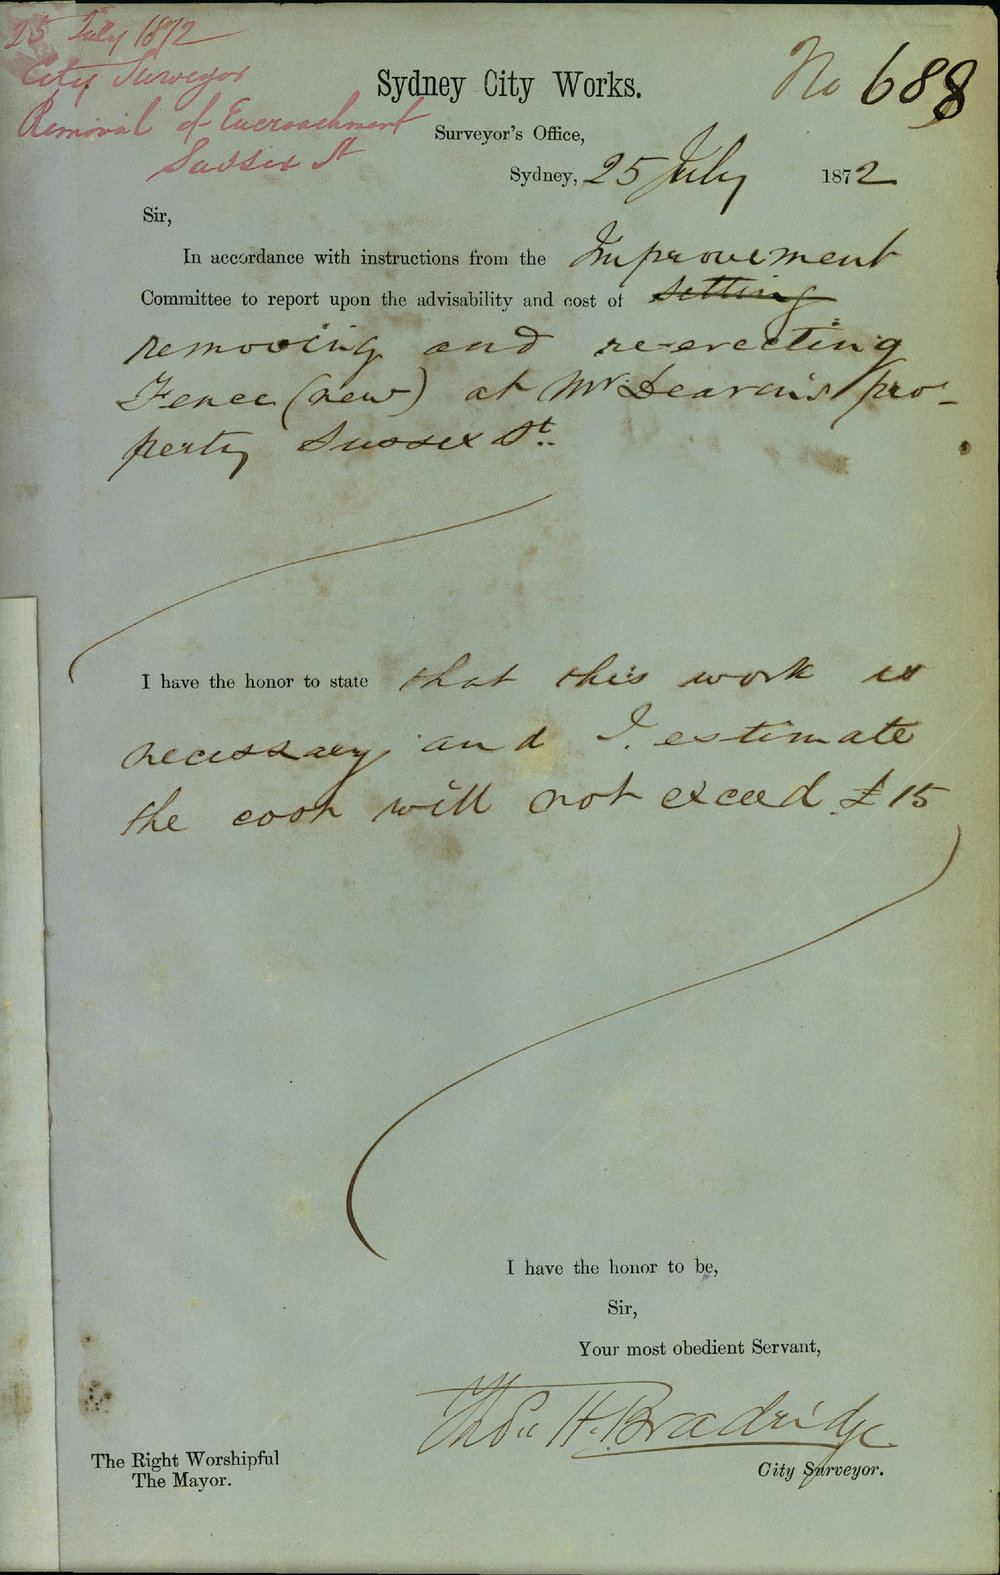 25 July 1872
City Surveyor
Removal of Encroachment
Sussex St
No 688
Sydney City Works.
Surveyor's Office,
Sydney, 25 July 1872
Sir,
In accordance with instructions from the Improvement
Committee to report upon the advisability and cost of setting
removing and re-erecting
Fence (new) at Mr. Dearin's pro-
perty Sussex St.
I have the honor to state that this work is
necessary and I estimate
the cost will not exceed £15
I have the honor to be,
Sir,
Your most obedient Servant,
Thos. H. Bradridge
City Surveyor.
The Right Worshipful
The Mayor.